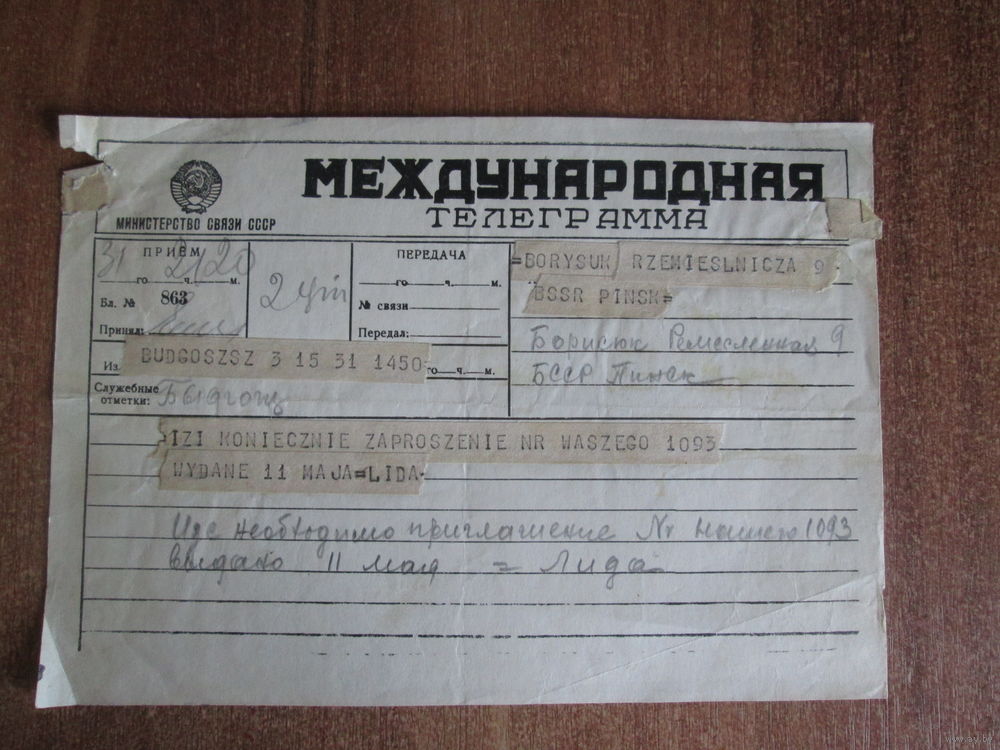 МЕЖДУНАРОДНАЯ
ТЕЛЕГРАММА
МИНИСТЕРСТВО СВЯЗИ СССР
ПРИЁМ
31 2120
го ч. м.
Бл. № 863
Принял:
ПЕРЕДАЧА
го ч. м.
№ связи
Передал:
=BORYSUK RZEMIESLNICZA 9
BSSR PINSK=
Борисюк Ремесленная 9
БССР Пинск
Из BUDGOSZSZ 3 15 31 1450 го ч. м.
Служебные отметки: Быдгощ
=IZI KONIECZNIE ZAPROSZENIE NR WASZEGO 1093
WYDANE 11 MAJA=LIDA
необходимо приглашение Nr 1093
выдано 11 мая = Лида
www.ay.by